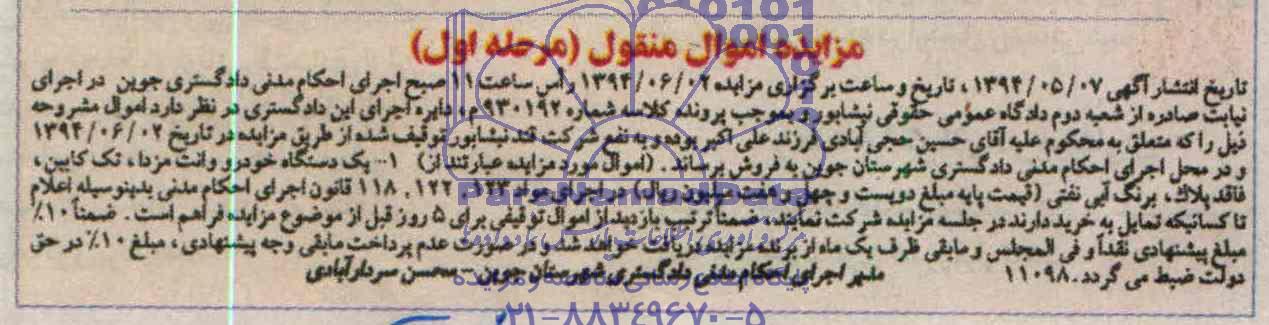 مزایده اموال منقول (مرحله اول)
تاریخ انتشار آگهی ۱۳۹۴/۰۵/۰۷ ، تاریخ و ساعت برگزاری مزایده ۱۳۹۴/۰۶/۰۲ رأس ساعت ۱۱ صبح اجرای احکام مدنی دادگستری جوین در اجرای
نیابت صادره از شعبه دوم دادگاه عمومی حقوقی نیشابور و بموجب پرونده کلاسه شماره ۹۳۰۱۹۲م، دایره اجرای این دادگستری در نظر دارد اموال مشروحه
ذیل را که متعلق به محکوم علیه آقای حسین حجی آبادی فرزند علی اکبر بوده و به نفع شرکت قند نیشابور توقیف شده از طریق مزایده در تاریخ ۱۳۹۴/۰۶/۰۲
و در محل اجرای احکام مدنی دادگستری شهرستان جوین به فروش برساند. (اموال مورد مزایده عبارتند از) ۱- یک دستگاه خودرو وانت مزدا، تک کابین،
فاقد پلاک، برنگ آبی نفتی (قیمت پایه مبلغ دویست و چهل و هفت میلیون ریال) در اجرای مواد ۱۲۳، ۱۲۲، ۱۱۸ قانون اجرای احکام مدنی بدینوسیله اعلام
تا کسانیکه تمایل به خرید دارند در جلسه مزایده شرکت نمایند، ضمناً ترتیب بازدید از اموال توقیفی برای ۵ روز قبل از موضوع مزایده فراهم است. ضمناً ۱۰٪
مبلغ پیشنهادی نقداً و فی المجلس و مابقی ظرف یک ماه از برنده مزایده دریافت خواهد شد و در صورت عدم پرداخت مابقی وجه پیشنهادی، مبلغ ۱۰٪ در حق
دولت ضبط می گردد. ۱۱۰۹۸ مدیر اجرای احکام مدنی دادگستری شهرستان جوین - محسن سردارآبادی
ParsNamadData
۰۲۱-۸۸۳۴۹۶۷۰-۵